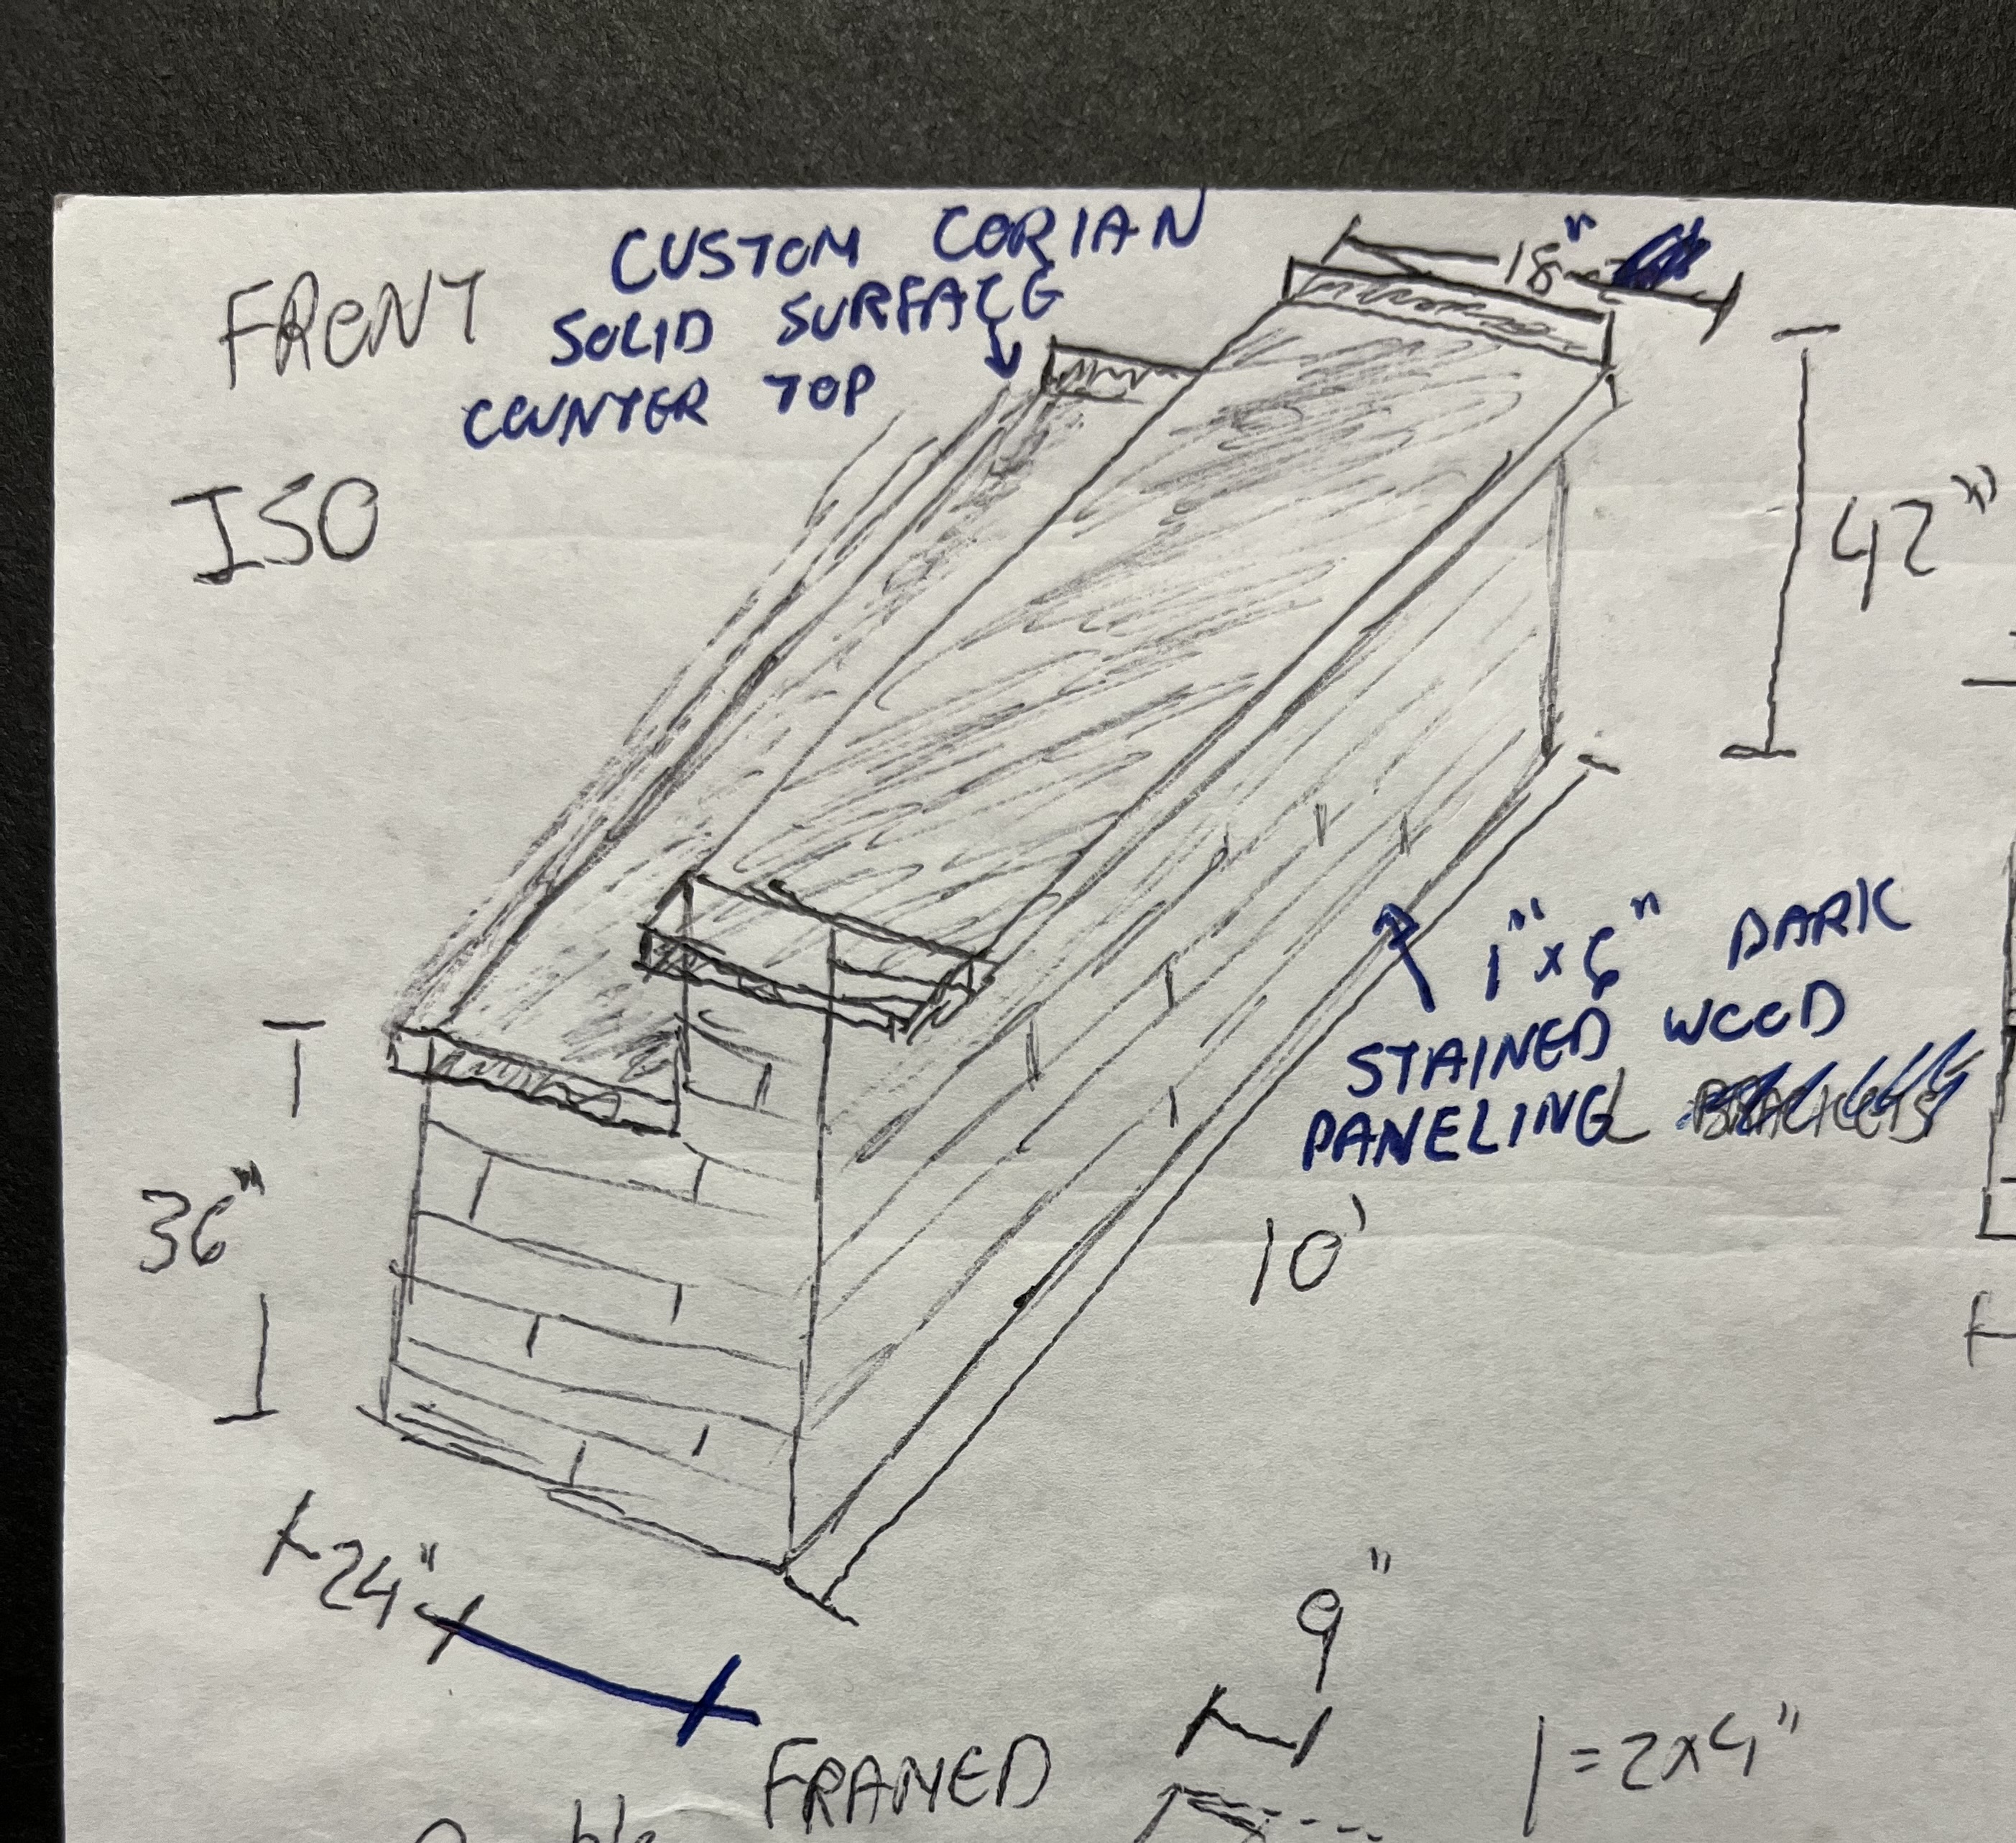 FRONT
CUSTOM CORIAN
SOLID SURFACE
COUNTER TOP
18"
ISO
42"
1"x6" DARK
STAINED WOOD
PANELING
36"
10'
24"
9"
FRAMED
| = 2x4"